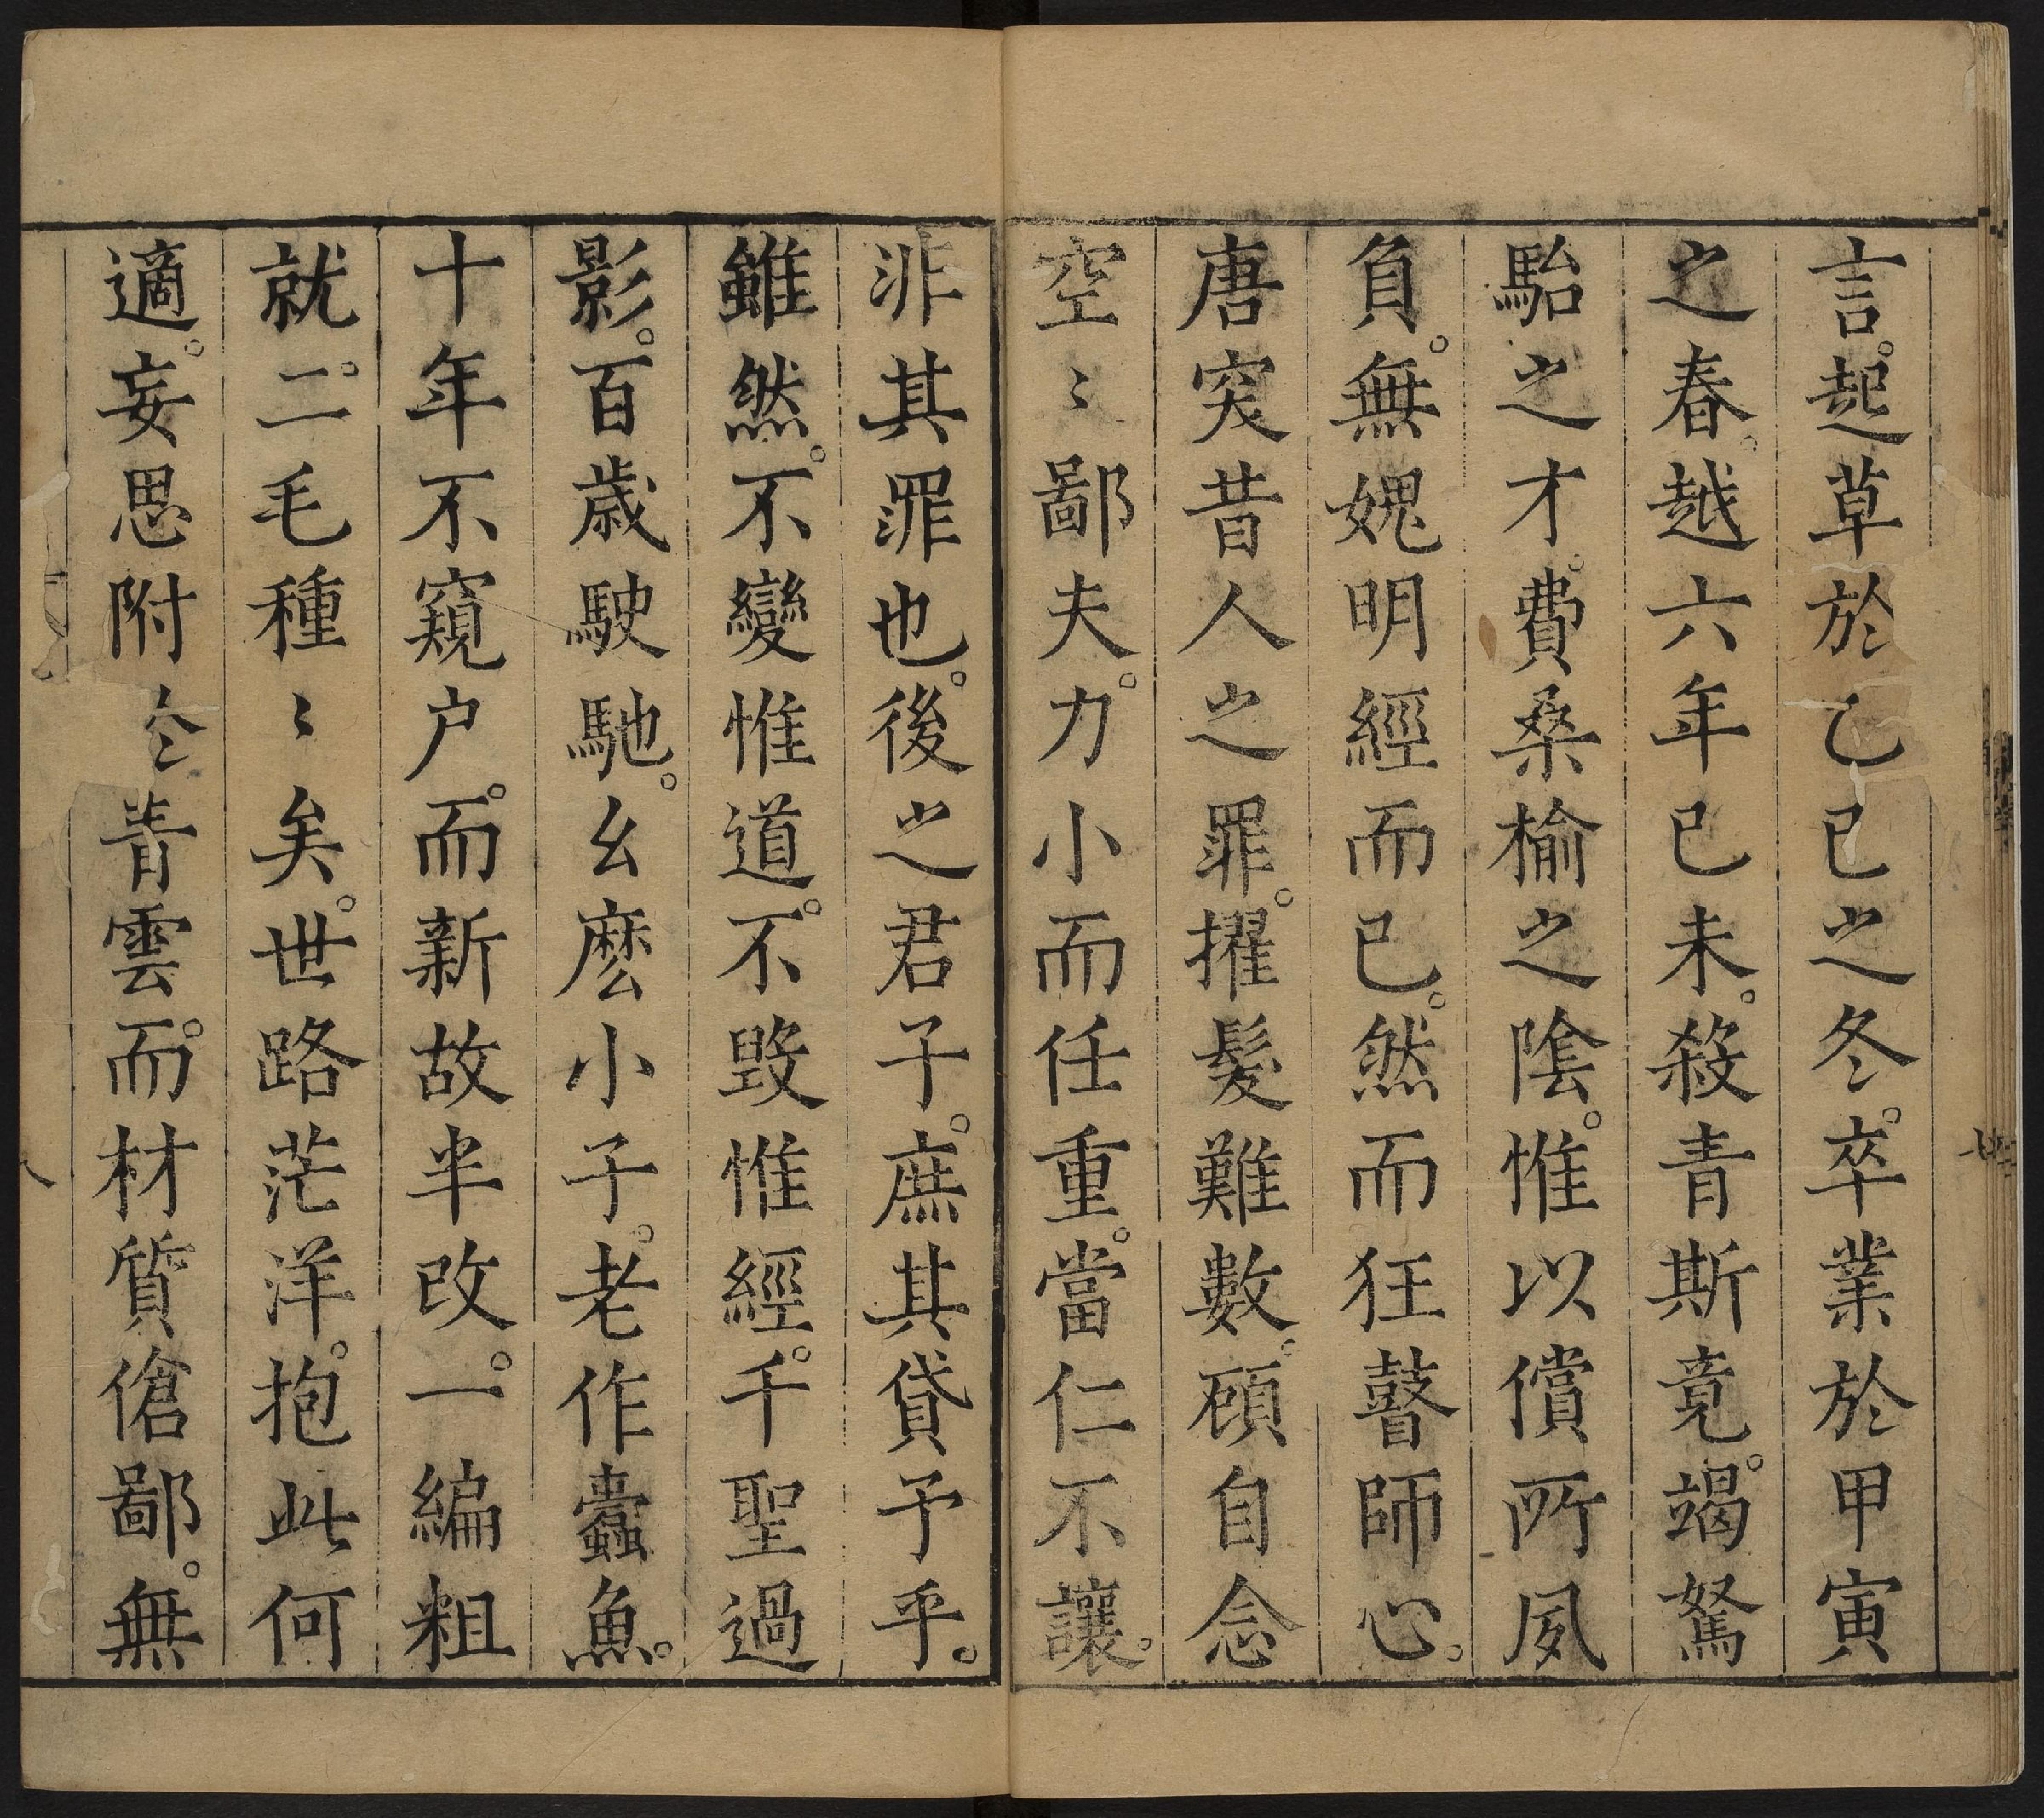 言。起草於乙巳之冬。卒業於甲寅
之春。越六年己未。殺青斯竟。竭駑
駘之才。費桑榆之陰。惟以償所夙
負。無媿明經而已。然而狂瞽師心。
唐突昔人之罪。擢髮難數。顧自念
空〻鄙夫。力小而任重。當仁不讓。
非其罪也。後之君子。庶其貸予乎。
雖然。不變惟道。不毀惟經。千聖過
影。百歲駛馳。幺麽小子。老作蠹魚。
十年不窺户。而新故半改。一編粗
就。二毛種〻矣。世路茫洋。抱此何
適。妄思附
青雲。而材質傖鄙。無